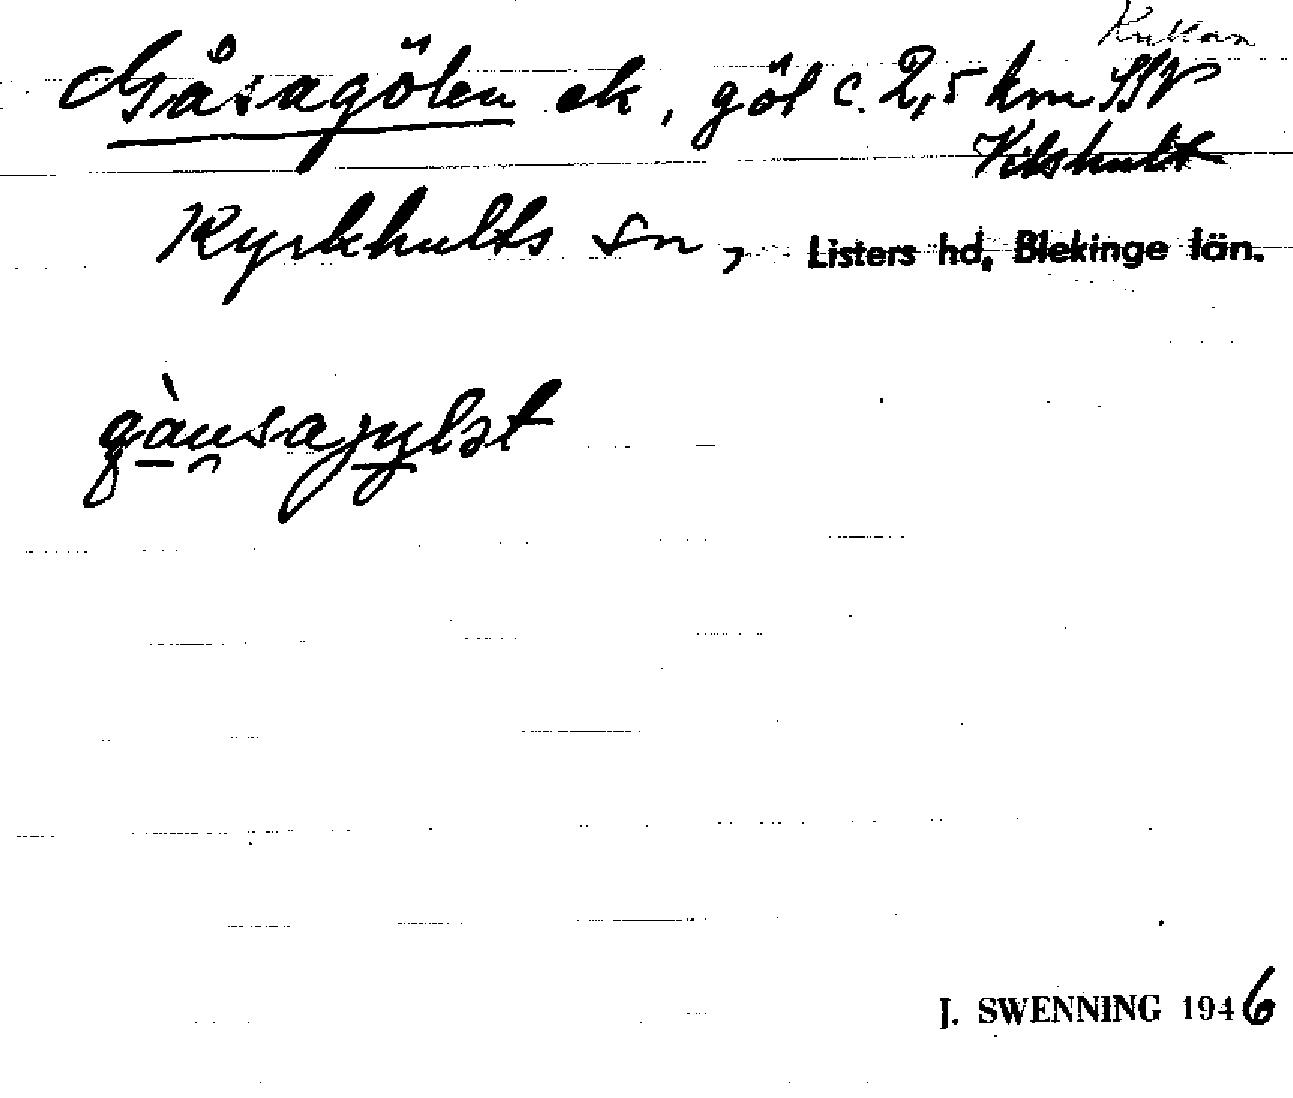 Kullan
Gåsagölen ek, göl c. 2,5 km SSV
Vilshult
Kyrkhults sn, Listers hd, Blekinge län.
gàu̯sajylət
J. SWENNING 1946